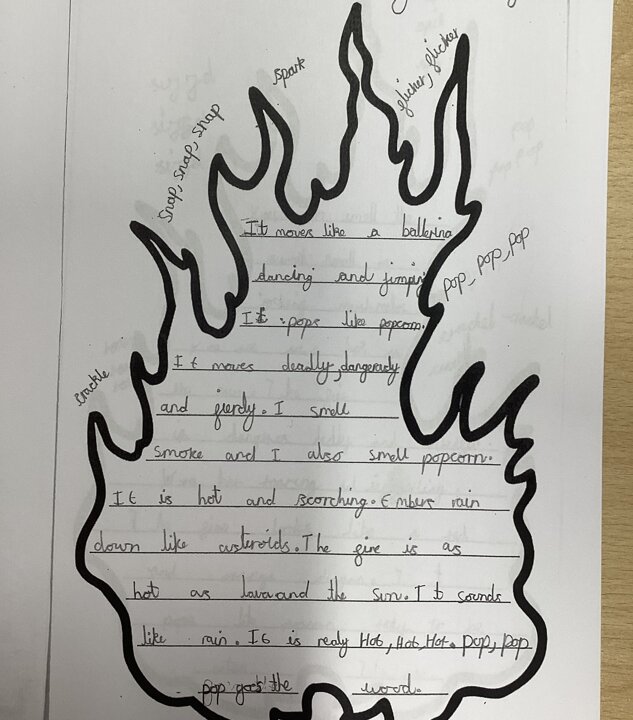 spark
flicker, flicker
snap, snap, snap
pop, pop, pop
crackle
It moves like a ballerina
dancing and jimping
It pops like popcorn.
It moves deadly, dangerously
and fierdy. I smell
smoke and I also smell popcorn.
It is hot and scorching. Embers rain
down like asteroids. The fire is as
hot as lava and the sun. It sounds
like rain. It is realy Hot, Hot, Hot. Pop, Pop
pop goes the wood.